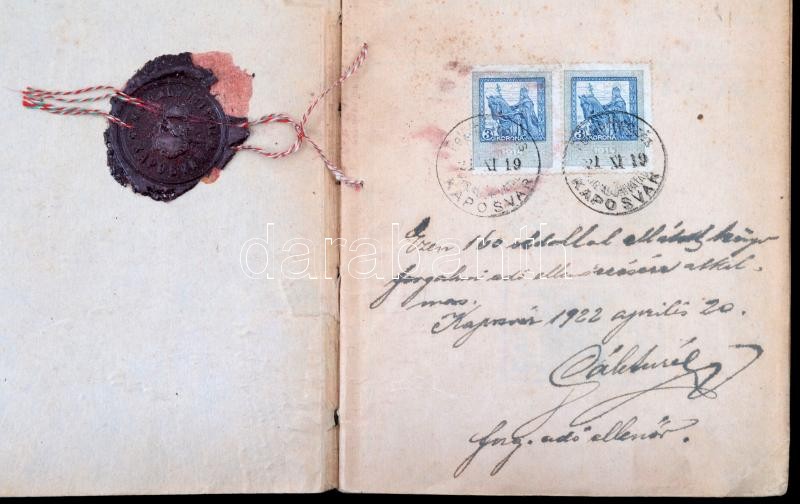 3 KORONA 3 KORONA
1915 1915
21 XI 19 21 XI 19
KAPOSVÁR KAPOSVÁR
darabanth
Ezen 160 oldallal ellátott könyv
forgalmi adó ellenőrzésére alkal-
mas.
Kaposvár 1922 április 20.
forg. adó ellenőr.